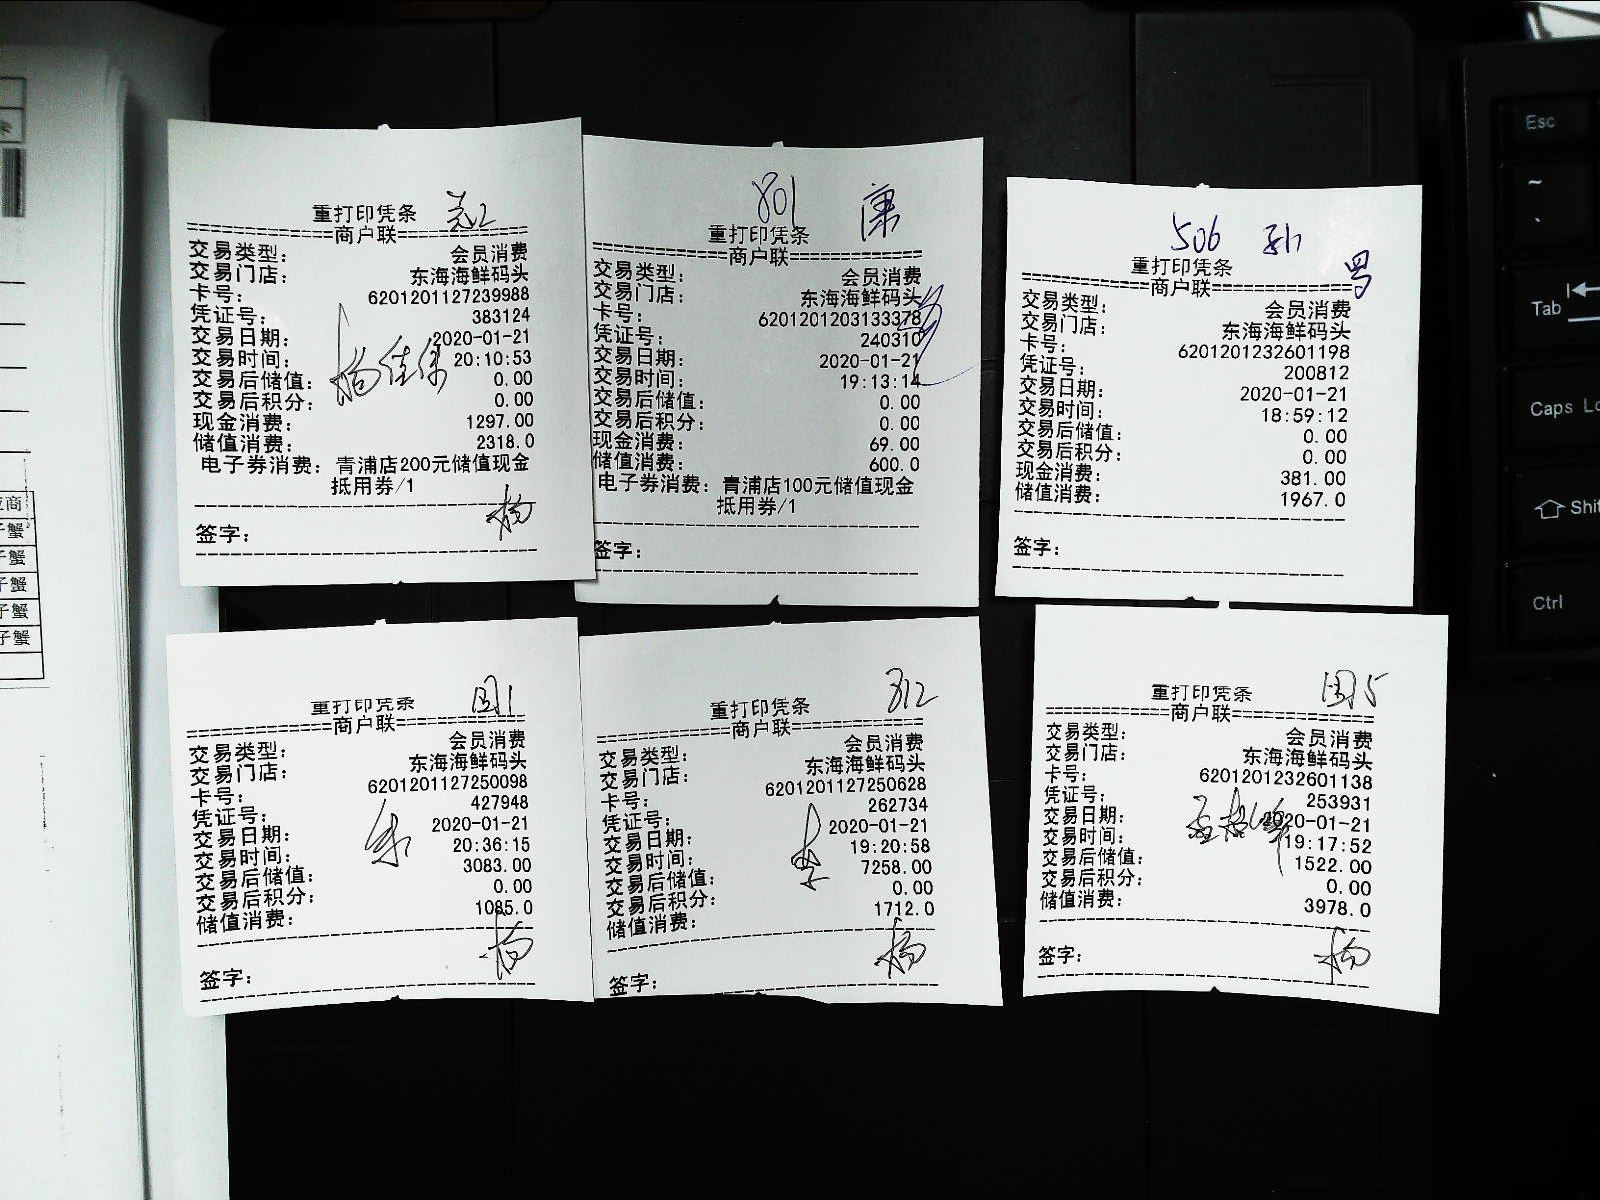 重打印凭条
============商户联============
交易类型： 会员消费
交易门店： 东海海鲜码头
卡号： 6201201127239988
凭证号： 383124
交易日期： 2020-01-21
交易时间： 20:10:53
交易后储值： 0.00
交易后积分： 0.00
现金消费： 1297.00
储值消费： 2318.0
电子券消费：青浦店200元储值现金
抵用券/1
杨
签字：
801 康
重打印凭条
============商户联============
交易类型： 会员消费
交易门店： 东海海鲜码头
卡号： 6201201203133378
凭证号： 240310
交易日期： 2020-01-21
交易时间： 19:13:14
交易后储值： 0.00
交易后积分： 0.00
现金消费： 69.00
储值消费： 600.0
电子券消费：青浦店100元储值现金
抵用券/1
签字：
506 孙
重打印凭条
============商户联============
交易类型： 会员消费
交易门店： 东海海鲜码头
卡号： 6201201232601198
凭证号： 200812
交易日期： 2020-01-21
交易时间： 18:59:12
交易后储值： 0.00
交易后积分： 0.00
现金消费： 381.00
储值消费： 1967.0
签字：
重打印凭条
============商户联============
交易类型： 会员消费
交易门店： 东海海鲜码头
卡号： 6201201127250098
凭证号： 427948
交易日期： 2020-01-21
交易时间： 20:36:15
交易后储值： 3083.00
交易后积分： 0.00
储值消费： 1085.0
杨
签字：
812
重打印凭条
============商户联============
交易类型： 会员消费
交易门店： 东海海鲜码头
卡号： 6201201127250628
凭证号： 262734
交易日期： 2020-01-21
交易时间： 19:20:58
交易后储值： 7258.00
交易后积分： 0.00
储值消费： 1712.0
李
杨
签字：
重打印凭条
============商户联============
交易类型： 会员消费
交易门店： 东海海鲜码头
卡号： 6201201232601138
凭证号： 253931
交易日期： 2020-01-21
交易时间： 19:17:52
交易后储值： 1522.00
交易后积分： 0.00
储值消费： 3978.0
杨
签字：
Esc
~
`
Tab
Caps
Ctrl
商
子蟹
子蟹
子蟹
子蟹
子蟹